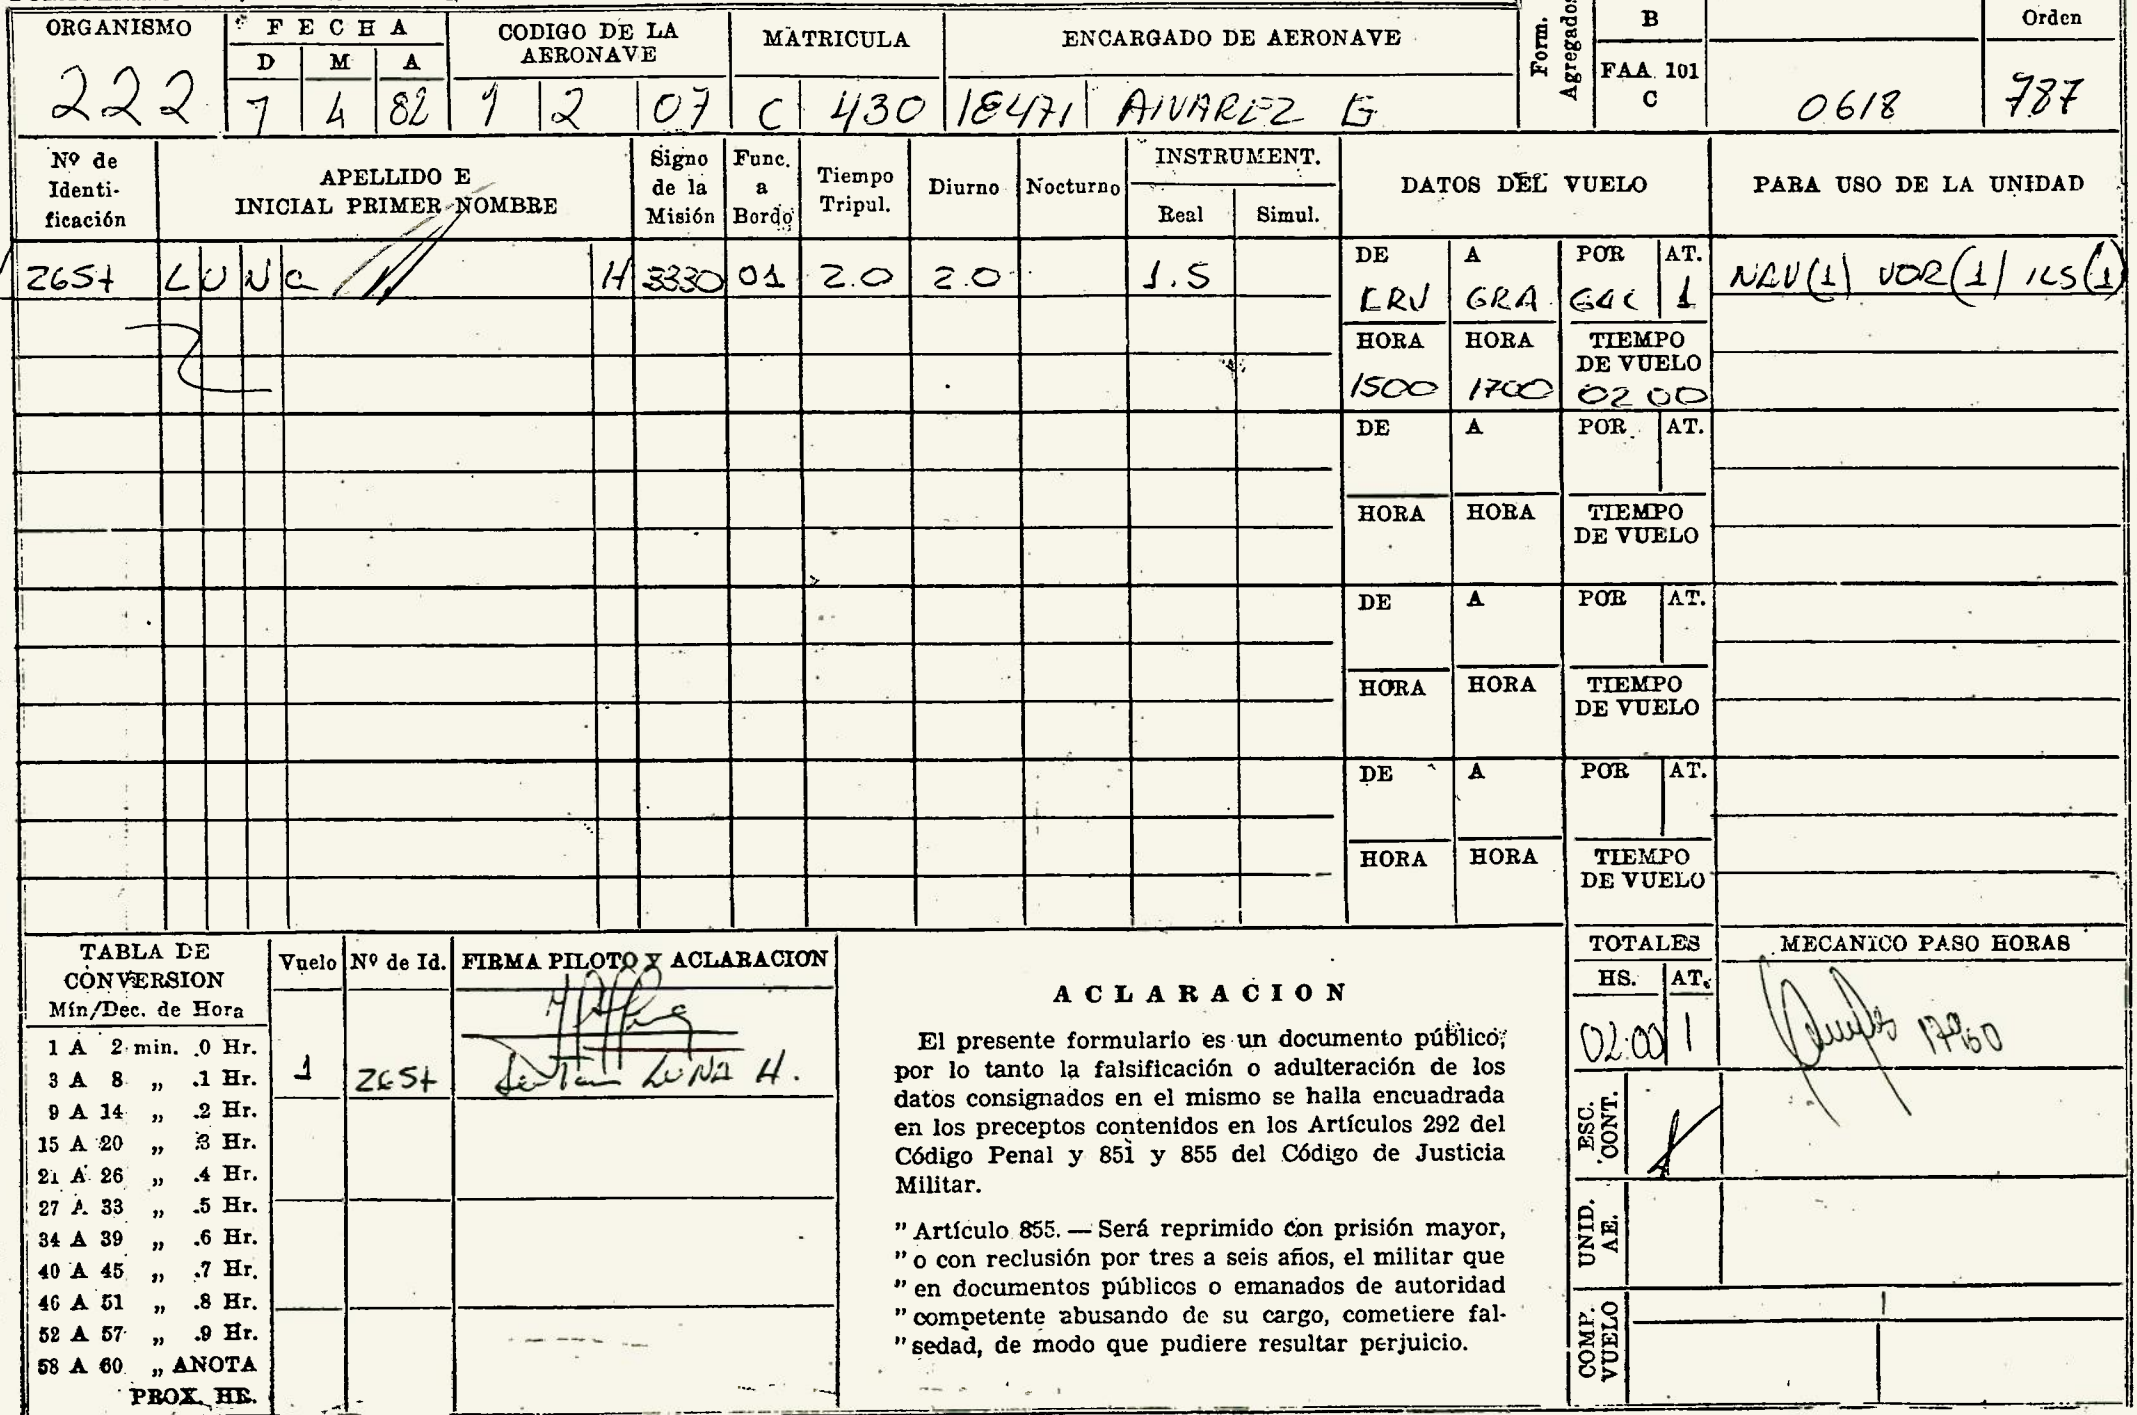 ORGANISMO FECHA CODIGO DE LA AERONAVE MATRICULA ENCARGADO DE AERONAVE Form. Agregados B Orden
D M A FAA 101 C
222 7 4 82 1 2 07 C 430 18471 AlVAREZ G 0618 787
Nº de Identi-ficación APELLIDO E INICIAL PRIMER NOMBRE Signo de la Misión Func. a Bordo Tiempo Tripul. Diurno Nocturno INSTRUMENT. DATOS DEL VUELO PARA USO DE LA UNIDAD
Real Simul.
DE A POR AT.
LUNa H 3330 01 2.0 2.0 1.5 GRA 1 VOR(1) ILS(1)
HORA HORA TIEMPO DE VUELO
1500 1700 02 00
DE A POR AT.
HORA HORA TIEMPO DE VUELO
DE A POR AT.
HORA HORA TIEMPO DE VUELO
DE A POR AT.
HORA HORA TIEMPO DE VUELO
TABLA DE CONVERSION
Mín/Dec. de Hora
1 A 2 min. .0 Hr.
3 A 8 „ .1 Hr.
9 A 14 „ .2 Hr.
15 A 20 „ .3 Hr.
21 A 26 „ .4 Hr.
27 A 33 „ .5 Hr.
34 A 39 „ .6 Hr.
40 A 45 „ .7 Hr.
46 A 51 „ .8 Hr.
52 A 57 „ .9 Hr.
58 A 60 „ ANOTA
PROX. HR.
Vuelo Nº de Id. FIRMA PILOTO Y ACLARACION
1 LUNA H.
ACLARACION
El presente formulario es un documento público,
por lo tanto la falsificación o adulteración de los
datos consignados en el mismo se halla encuadrada
en los preceptos contenidos en los Artículos 292 del
Código Penal y 851 y 855 del Código de Justicia
Militar.
" Artículo 855. — Será reprimido con prisión mayor,
" o con reclusión por tres a seis años, el militar que
" en documentos públicos o emanados de autoridad
" competente abusando de su cargo, cometiere fal-
" sedad, de modo que pudiere resultar perjuicio.
TOTALES MECANICO PASO HORAS
HS. AT.
02.00 1
ESC. CONT.
UNID. AE.
COMP. VUELO